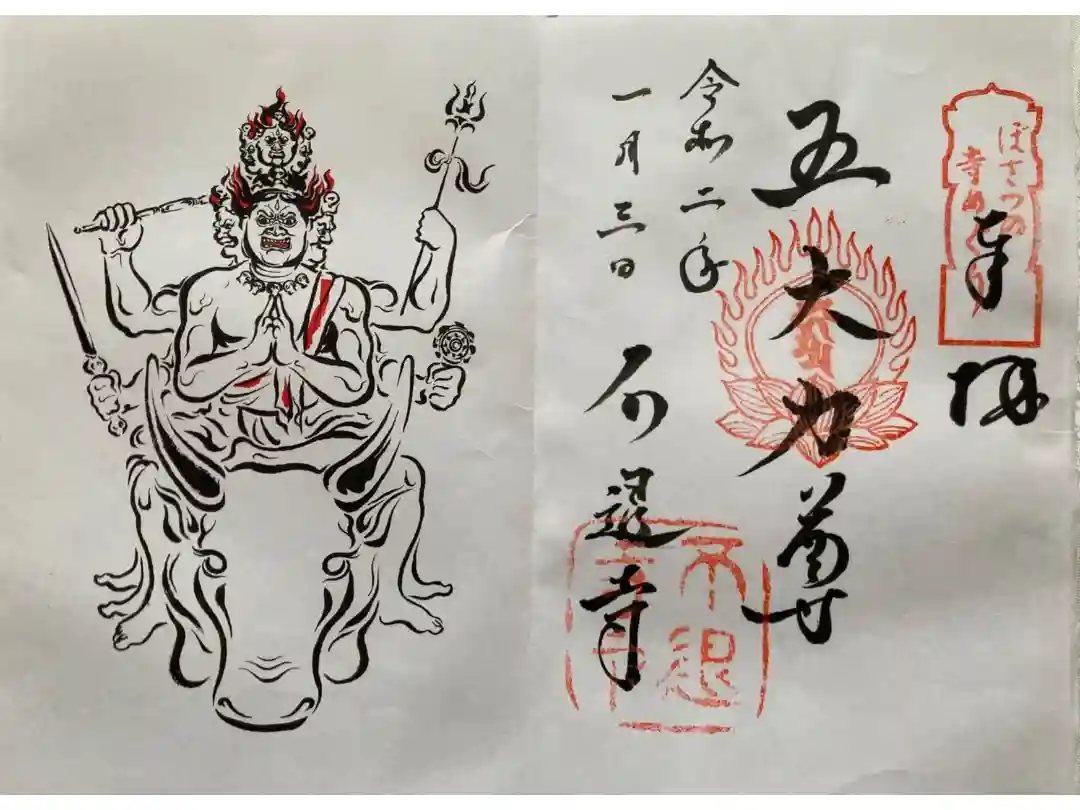 ぼさつの
寺めぐり
奉拝
五大力尊
令和二年
一月三日
不退寺
不退